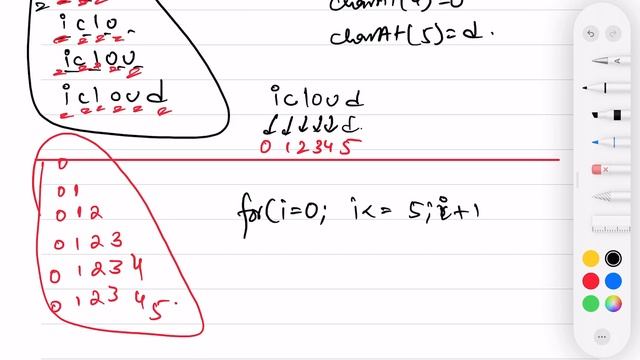 iclo
charAt(5)=d.
iclou
icloud
icloud
0 1 2 3 4 5
0
0 1
0 1 2
for(i=0; i<= 5; i+1
0 1 2 3
0 1 2 3 4
0 1 2 3 4 5